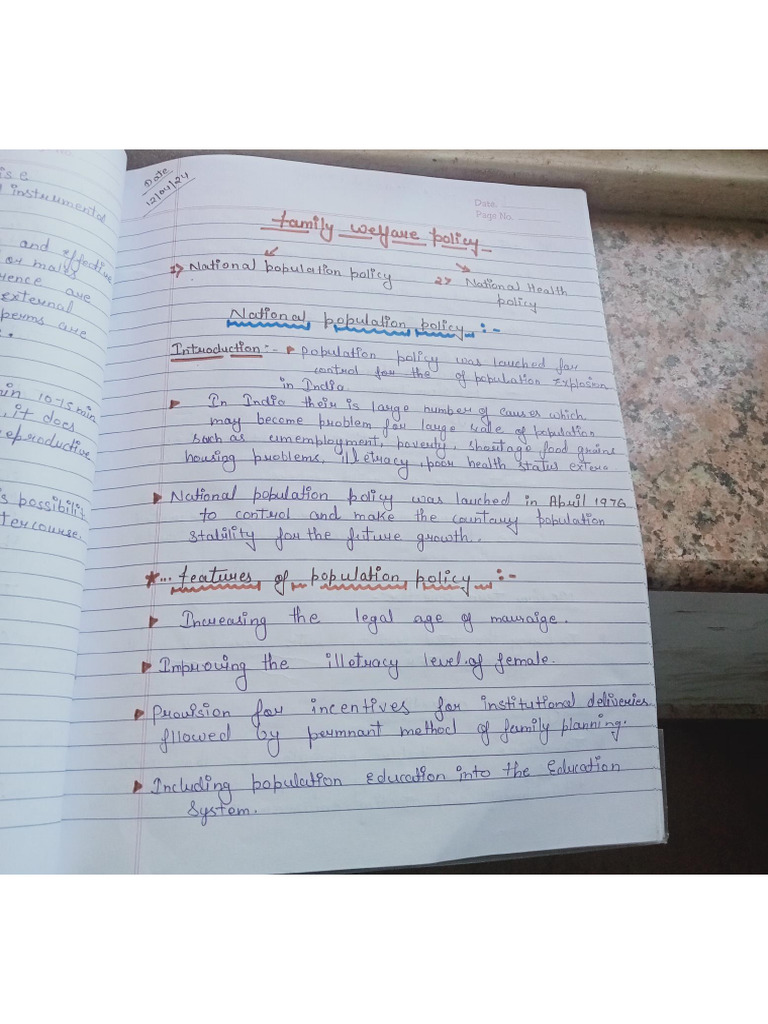 is e
instrumental
and effective
or males
rence are
external
perms are
in 10-15 min
, it does
reproductive
s possibilit
tercourse.
Date
12/04/24
Date:
Page No.
family welfare policy
1) National population policy
2) National Health
policy
National population policy :-
Introduction :- population policy was lauched for
control for the of population Explosion
in India
In India their is large number of causes which
may become problem for large scale of population
such as umemployment, poverty, shortage food grains
housing problems, illetracy, poor health status
National population policy was lauched in April 1976
to control and make the countary population
stability for the future growth.
features of population policy :-
Increasing the legal age of mauraige.
Improving the illetracy level of female.
Provision for incentives for institutional deliveries
fllowed by permnant method of family planning.
Including population Education into the Education
System.